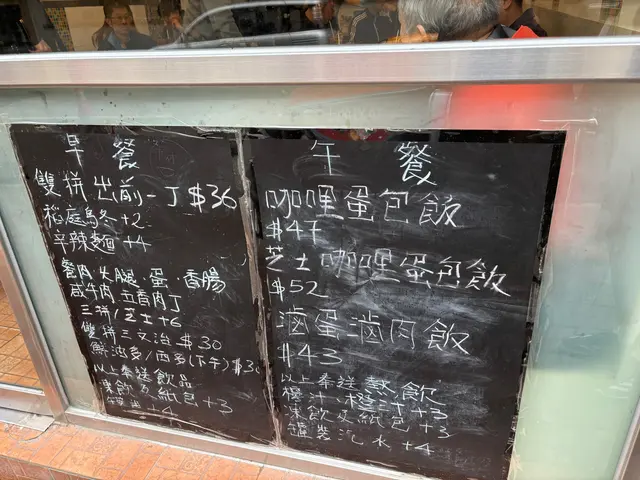 早餐
雙拼出前一丁$36
稻庭烏冬+2
辛辣麵+4
餐肉.火腿.蛋.香腸
咸牛肉.五香肉丁
三拼/芝士+6
雙拼三文治$30
鮮油多/西多(下午)$30
以上奉送飲品
凍飲及紙包+3
+4
午餐
咖哩蛋包飯
$47
芝士咖哩蛋包飯
$52
滷蛋滷肉飯
$43
以上奉送熱飲
橙汁+3
凍飲及紙包+3
罐裝汽水+4